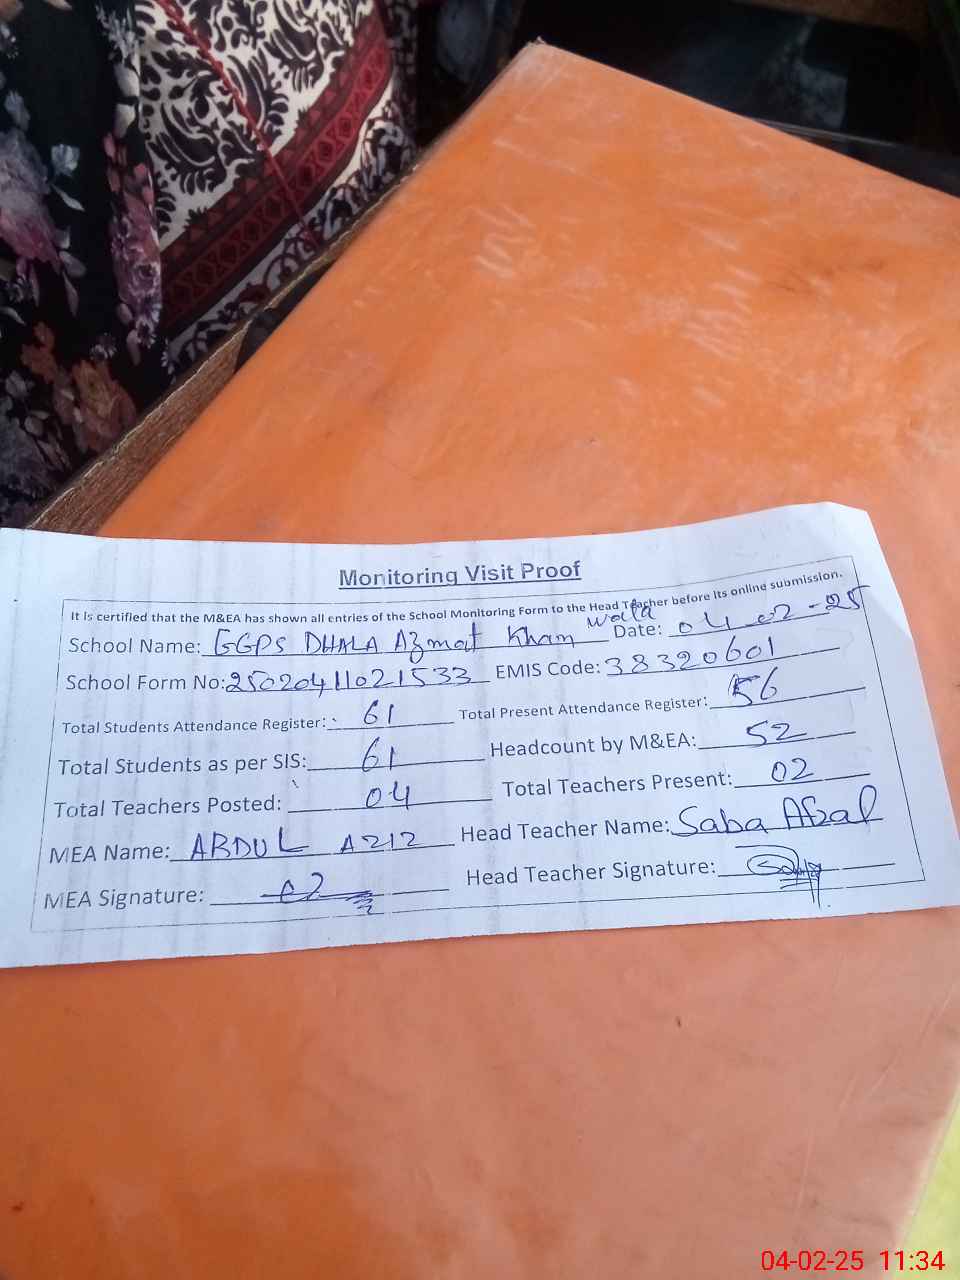 Monitoring Visit Proof
It is certified that the M&EA has shown all entries of the School Monitoring Form to the Head Teacher before its online submission.
School Name: GGPS DHALA Azmat Khan wala Date: 04-02-25
School Form No: 25020411021533 EMIS Code: 38320601
Total Students Attendance Register: 61 Total Present Attendance Register: 56
Total Students as per SIS: 61 Headcount by M&EA: 52
Total Teachers Posted: 04 Total Teachers Present: 02
MEA Name: ABDUL AZIZ Head Teacher Name: Saba Afzal
MEA Signature: Head Teacher Signature:
04-02-25 11:34